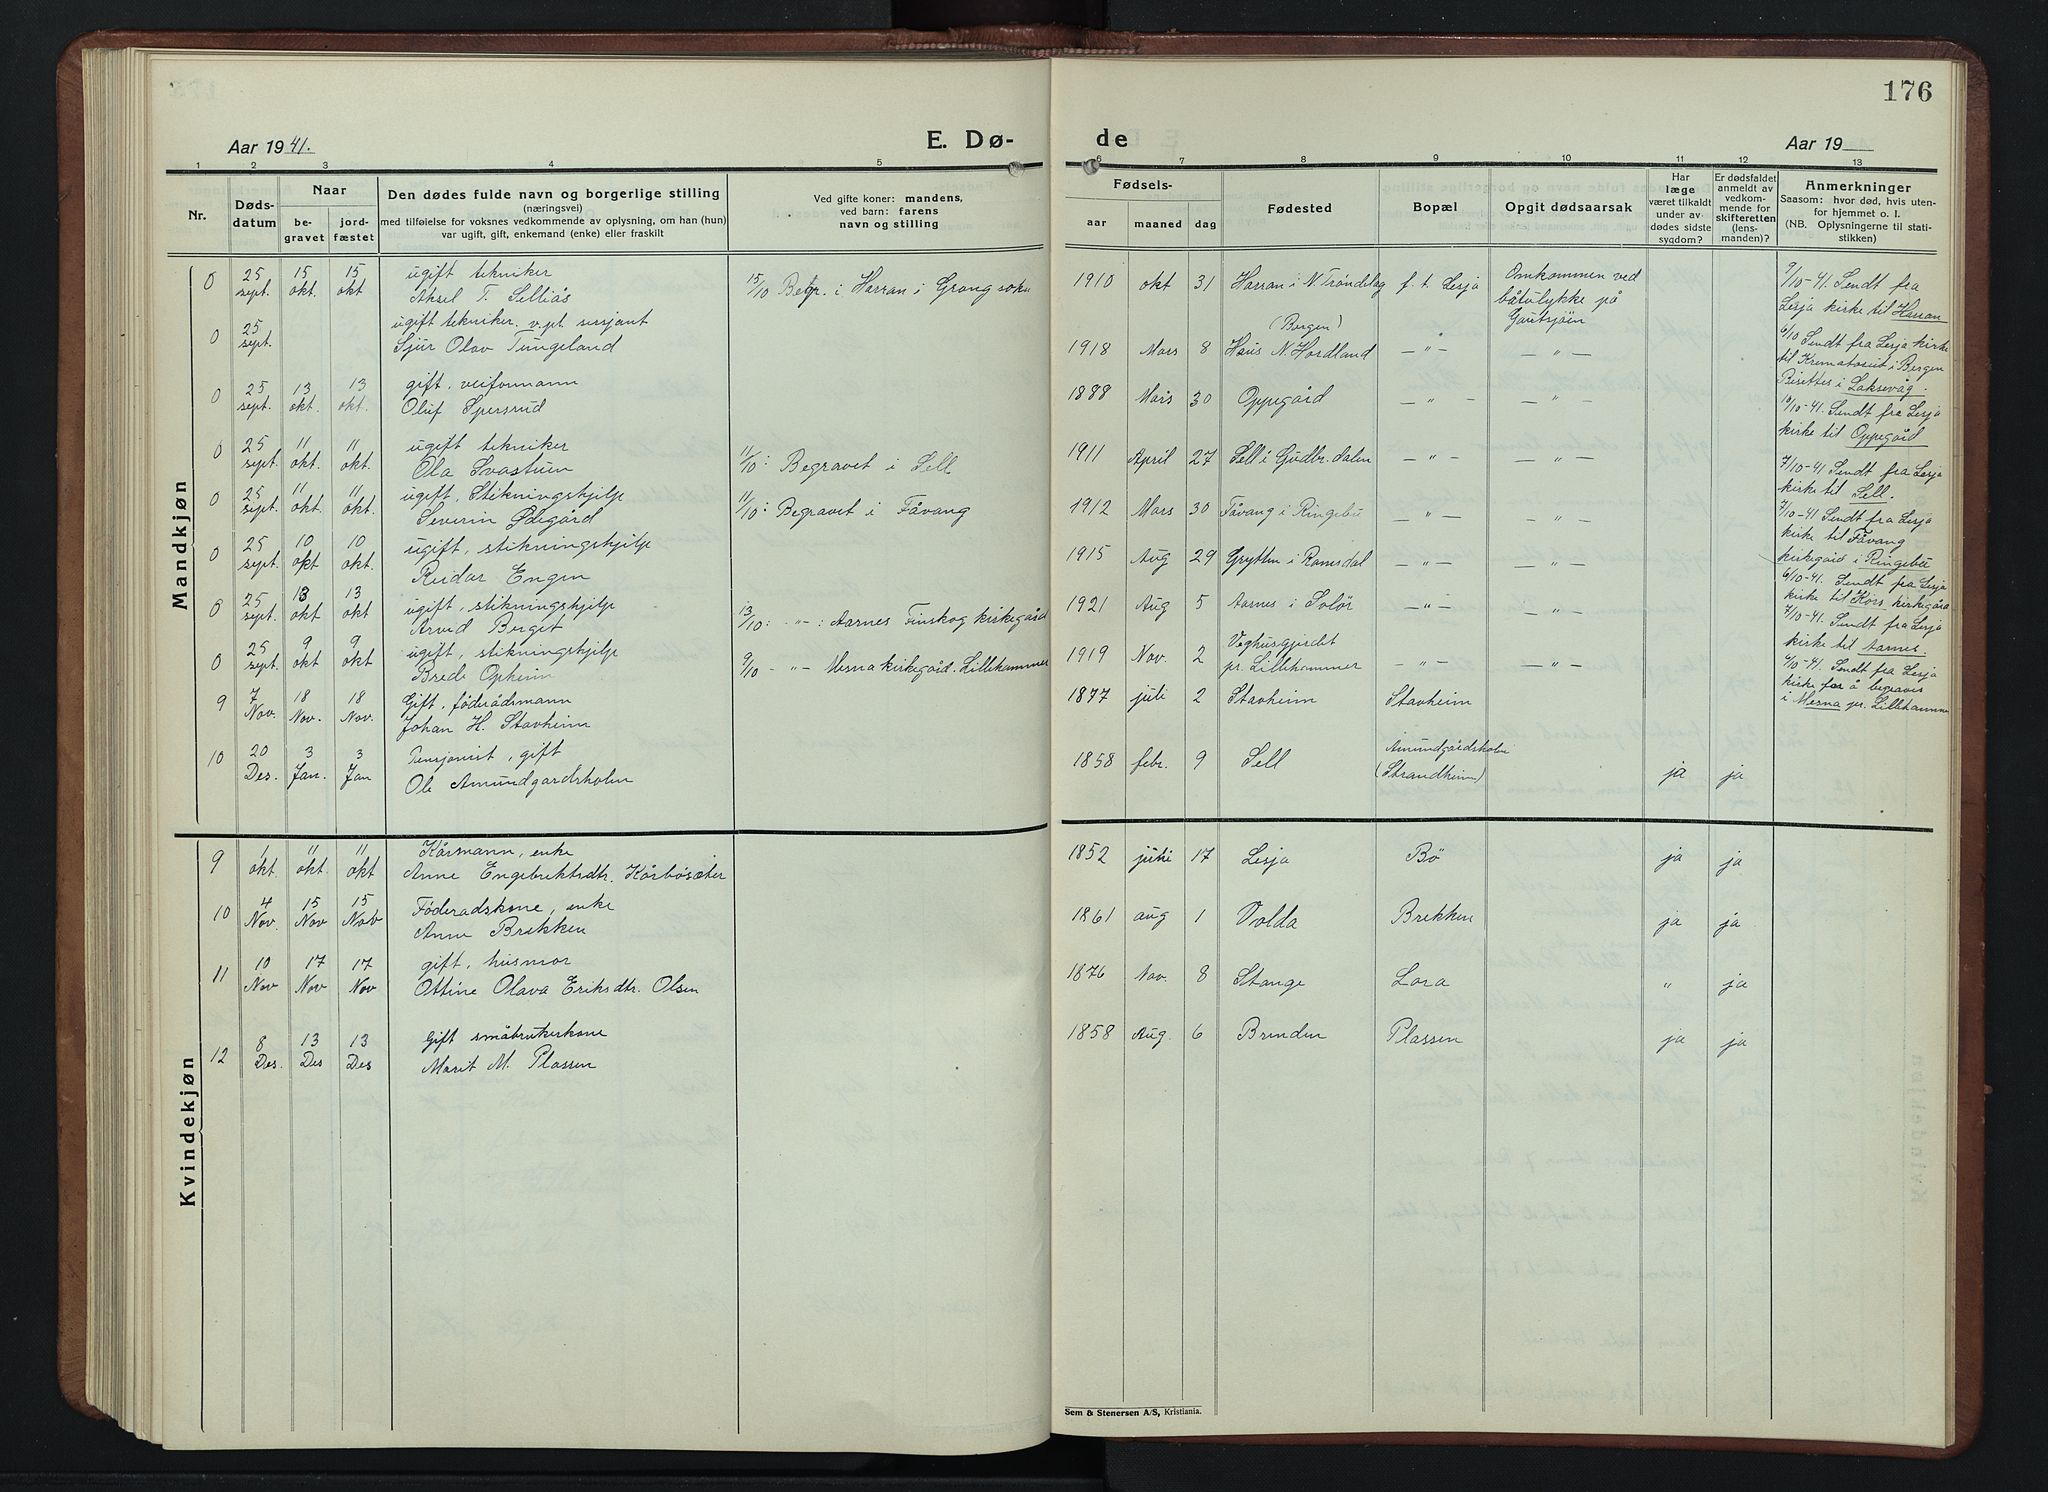 176
Aar 1941.
E. Dø-
de
Aar 19
1 2 3 4 5 6 7 8 9 10 11 12 13
Nr.
Døds-
datum
Naar
be-
gravet
jord-
fæstet
Den dødes fulde navn og borgerlige stilling
(næringsvei)
med tilføielse for voksnes vedkommende av oplysning, om han (hun)
var ugift, gift, enkemand (enke) eller fraskilt
Ved gifte koner: mandens,
ved barn: farens
navn og stilling
Fødsels-
aar maaned dag
Fødested
Bopæl
Opgit dødsaarsak
Har
læge
været tilkaldt
under av-
dødes sidste
sygdom?
Er dødsfaldet
anmeldt av
vedkom-
mende for
skifteretten
(lens-
manden)?
Anmerkninger
Saasom: hvor død, hvis uten-
for hjemmet o. l.
(NB. Oplysningerne til stati-
stikken)
Mandkjøn
0 25 sept. 15 okt. 15 okt ugift tekniker
Aksel T. Selliås
15/10 Begr. i Harran i Grong sokn
1910 okt 31 Harran i N. Trøndelag f. t. Lesja Omkommen ved
båtulykke på
Gautsjøen
9/10-41. Sendt fra
Lesja kirke til Harran
0 25 sept. ugift tekniker. v. pl. sersjant
Sjur Olav Tungeland
1918 Mars 8 (Bergen)
Haus N. Hordland — " — — " —
6/10 Sendt fra Lesja kirke
til Krematoriet i Bergen
Bisettes i Laksevåg.
0 25 sept. 13 okt. 13 okt. gift, veiformann
Oluf Spersrud
1888 Mars 30 Oppegård — " — — " —
10/10-41. Sendt fra Lesja
kirke til Oppegård
0 25 sept. 11 okt. 11 okt. ugift tekniker
Ola Svastuen
11/10: Begravet i Sell
1911 April 27 Sell i Gudbr. dalen — " — — " —
7/10-41 Sendt fra Lesja
kirke til Sell.
0 25 sept. 11 okt. 11 okt. ugift, Stikningshjelp
Severin Ødegård
11/10: Begravet i Fåvang
1912 Mars 30 Fåvang i Ringebu — " — — " —
7/10-41 Sendt fra Lesja
kirke til Fåvang
kirkegård i Ringebu
0 25 sept. 10 okt 10 okt. ugift, stikningshjelp
Reidar Engen
1915 Aug 29 Grytten i Romsdal — " — — " —
6/10-41. Sendt fra Lesja
kirke til Kors kirkegård
0 25 sept. 13 okt 13 okt. ugift, stikningshjelp
Arvid Berget
13/10: - " - : Aarnes Finskog kirkegård
1921 Aug 5 Aarnes i Solør — " — — " —
7/10-41. Sendt fra Lesja
kirke til Aarnes.
0 25 sept. 9 okt 9 okt ugift, stikningshjelp
Brede Opheim
9/10 - " - Mesna kirkegård. Lillehammer
1919 Nov. 2
pr. Lillehammer — " — — " —
7/10-41. Sendt fra Lesja
kirke for å begraves
i Mesna pr. Lillehammer
9 7 Nov. 18 Nov. 18 Nov. Gift, føderådsmann
Johan H. Stavheim
1877 juli 2 Stavheim Stavheim
10 20 Des. 3 Jan. 3 Jan Pensjonist, gift
Ole Amundgardsholen
1858 febr. 9 Sell Amundgårdsholen
(Strandheim) ja ja
Kvindekjøn
9 1 okt. 11 okt. 11 okt Kårmann, enke
Anne Engebrektsdtr. Kårbøsæter
1852 juli 17 Lesja Bø ja ja
10 4 Nov. 15 Nov 15 Nov Føderadskone, enke
Anne Brekken
1861 aug 1 Volda Brekken ja ja
11 10 Nov 17 Nov 17 Nov gift, husmor
Ottine Olava Eriksdtr. Olsen
1876 Nov. 8 Stange Lora " ja
12 8 Des. 13 Des 13 Des Gift småbrukerkone
Marit M. Plassen
1858 Aug. 6 Brenden Plassen ja ja
Sem & Stenersen A/S, Kristiania.